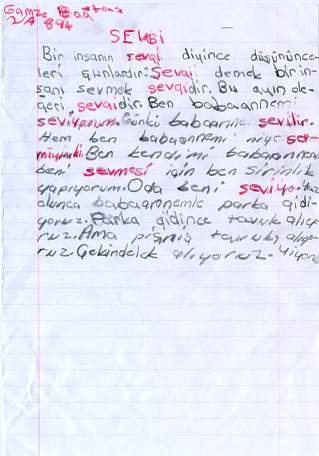 Gamze Bağ
2/A 894
SEVGİ
Bir insanın sevgi diyince düşününce-
leri şunlardır. Sevgi demek bir in-
sanı sevmek sevgidir. Bu ayın de-
ğeri sevgidir. Ben babaannemi
seviyorum. Çünkü babaanne sevilir.
Hem ben babaannemi niye sev-
miyimki. Ben kendimi babaannem
beni sevmesi için ben şirinlik
yapıyorum. Oda beni seviyo. Yaz
olunca babaannemle parka gidi-
yoruz. Parka gidince tavuk alıyo
ruz. Ama pişmiş tavuk alıyo-
ruz. Çekirdekde alıyoruz. Yiyoruz